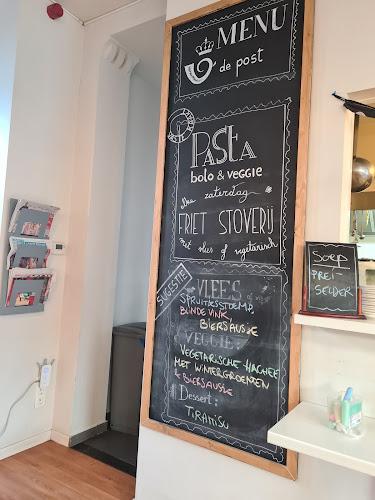 MENU
de post
PASTA
bolo & veggie
elke zaterdag
FRIET STOVERIJ
met vlees of vegetarisch
SUGESTIE
VLEES
SPRUITJESSTOEMP,
BLINDE VINK,
BIERSAUSJE
VEGGIE:
VEGETARISCHE HACHEE
MET WINTERGROENTEN
& BIERSAUSJE
Dessert:
TIRAMISU
SOEP
PREI-
SELDER